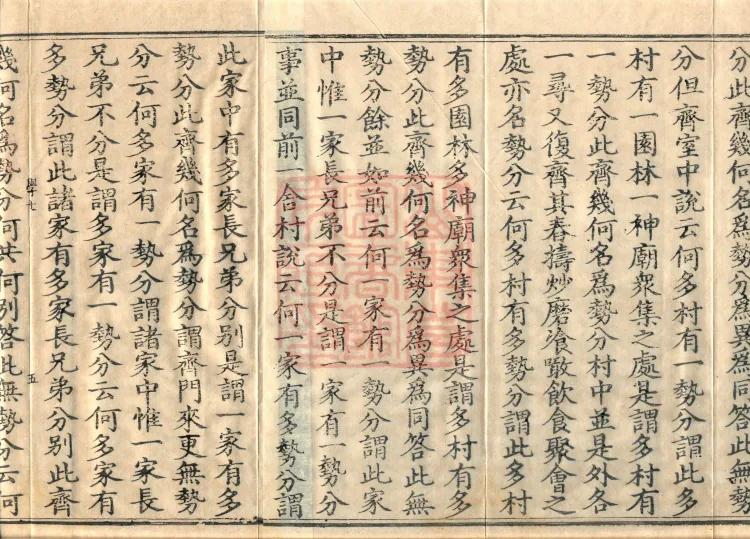 分此齊幾何名爲勢分爲異爲同答此無勢
分但齊室中說云何多村有一勢分謂此多
村有一園林一神廟衆集之處是謂多村有
一勢分此齊幾何名爲勢分村中並是外各
一尋又復齊其舂擣炒磨飡噉飲食聚會之
處亦名勢分云何多村有多勢分謂此多村
有多園林多神廟衆集之處是謂多村有多
勢分此齊幾何名爲勢分爲異爲同答此無
勢分餘並如前云何一家有一勢分謂此家
中惟一家長兄弟不分是謂一家有一勢分
事並同前一舍村說云何一家有多勢分謂
此家中有多家長兄弟分別是謂一家有多
勢分此齊幾何名爲勢分謂齊門來更無勢
分云何多家有一勢分謂諸家中惟一家長
兄弟不分是謂多家有一勢分云何多家有
多勢分謂此諸家有多家長兄弟分別此齊
學九 五
幾何名爲勢分何共何別答此無勢分云何